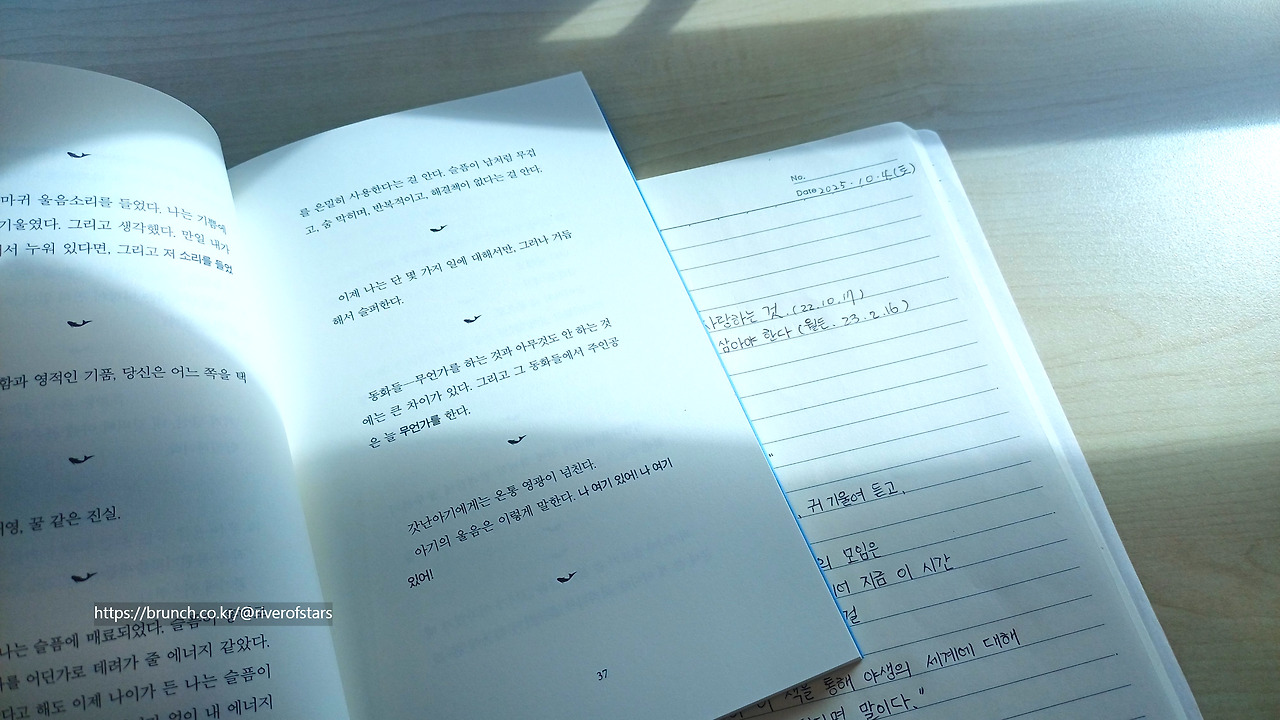 마귀 울음소리를 들었다. 나는 기쁨에
기울였다. 그리고 생각했다. 만일 내가
서 누워 있다면, 그리고 저 소리를 들었
함과 영적인 기품, 당신은 어느 쪽을 택
영, 꿀 같은 진실.
나는 슬픔에 매료되었다. 슬픔의
를 어딘가로 데려가 줄 에너지 같았다.
다고 해도 이제 나이가 든 나는 슬픔이
없이 내 에너지
를 은밀히 사용한다는 걸 안다. 슬픔이 납처럼 무겁
고, 숨 막히며, 반복적이고, 해결책이 없다는 걸 안다.
이제 나는 단 몇 가지 일에 대해서만, 그러나 거듭
해서 슬퍼한다.
동화들—무언가를 하는 것과 아무것도 안 하는 것
에는 큰 차이가 있다. 그리고 그 동화들에서 주인공
은 늘 무언가를 한다.
갓난아기에게는 온통 영광이 넘친다.
아기의 울음은 이렇게 말한다. 나 여기 있어! 나 여기
있어!
37
No.
Date 2025.10.4(토)
사랑하는 것. (22.10.17)
삼아야 한다 (월든. 23.2.16)
"
귀 기울여 듣고,
의 모임은
지금 이 시간
걸
책을 통해 야생의 세계에 대해
다면 말이다."
https://brunch.co.kr/@riverofstars